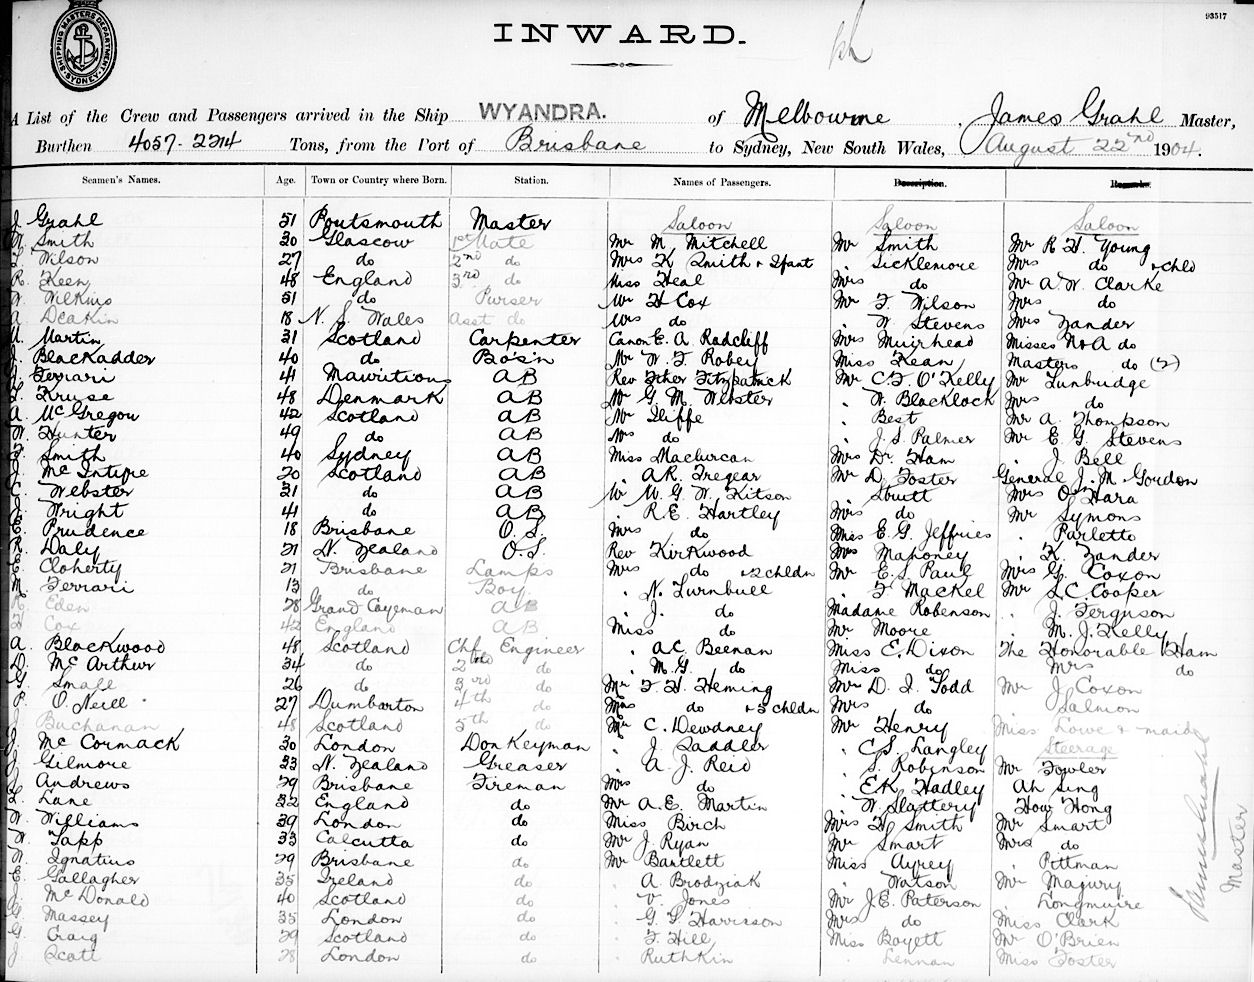 93517
SHIPPING MASTERS DEPARTMENT
SYDNEY
INWARD.
A List of the Crew and Passengers arrived in the Ship WYANDRA. of Melbourne, James Grahl Master,
Burthen 4057-2214 Tons, from the Port of Brisbane to Sydney, New South Wales, August 22nd 1904.
Seamen's Names. Age. Town or Country where Born. Station. Names of Passengers. Description. Remarks.
J. Grahl 51 Poutsmouth Master Saloon Saloon Saloon
Smith 30 Glascow 1st Mate Mr M. Mitchell Mr Smith Mr R H. Young
Wilson 27 do 2nd do Mrs K Smith + Ifant . Sicklemore Mrs do + chld
R. Keen 48 England 3rd do Miss Heal Mrs do Mr A. W. Clarke
W. Wilkins 51 do Purser Mr H Cox Mr F. Wilson Mrs do
A Deakin 18 N. S. Wales Asst do Mrs do . W Stevens Mrs Zander
Martin 31 Scotland Carpenter Canon E. A. Radcliff Mrs Muirhead Misses N & A do
J. Blackadder 40 do Bos'n Mr W. F. Robey Miss Kean Masters do (2)
Ferrari 41 Mauritious AB Rev Fther Fitzpatrick Mr C. F. O'Kelly Mr Tunbridge
Kruse 48 Denmark AB Mr G. M. Webster . W. Blacklock Mrs do
A. McGregou 42 Scotland AB Mr Iliffe . Best Mr A. Thompson
W. Hunter 49 do AB Mrs do . J. S. Palmer Mr E. G. Stevens
Smith 40 Sydney AB Miss Maclurcan Mrs Dr. Ham . J. Bell
J. McIntyre 20 Scotland AB . A R. Tregear Mr D. Foster General J. M. Gordon
C. Webster 31 do AB Mr W. G. W. Kitson . Strutt Mrs O'Hara
J. Wright 41 do AB . R. E. Hartley Mrs do Mr Symons
E. Prudence 18 Brisbane O. S. Mrs do Miss E. G. Jeffries . Parletto
R. Daly 21 N. Zealand O. S. Rev Kirkwood Mrs Mahoney . K. Zander
E. Cloherty 21 Brisbane Lamps Mrs do + 2 chldn Mr E. S. Paul Mrs G. Coxon
M. Ferrari 13 do Boy . N. Turnbull . F Mackel Mr S. C. Cooper
R. Eden 28 Grand Cayeman AB . J. do Madame Robenson . J. Ferguson
Cox 42 England AB Miss do Mr Moore . M. J. Kelly
A. Blackwood 48 Scotland Chf Engineer . A C Beenan Miss E. Dixon The Honorable Ham
D. McArthur 34 do 2nd do . M. G. do Miss do Mrs do
G. Small 26 do 3rd do Mr F. H. Heming Mr D. I. Todd Mr J Coxon
P. O. Neill 27 Dumbarton 4th do Mrs do + 3 chldn Mrs do . Salmon
J Buchanan 48 Scotland 5th do Mr C. Dewdney Mr Henry Miss Lowe & maid
J. McCormack 30 London Donkeyman . J. Saddler . C. S. Langley Steerage
J Gilmore 33 N. Zealand Greaser . A J. Reid . S. Robinson Mr Fowler
J Andrews 29 Brisbane Fireman Mrs do . E K Hadley Ah Sing
Lane 32 England do Mr A. E. Martin . W. Slattery How Hong
W. Williams 39 London do Miss Birch Mrs H Smith Mr Smart
W. Tapp 33 Calcutta do Mr J. Ryan Mr Smart Mrs do
W. Ignatius 29 Brisbane do Mr Bartlett Miss Ayrey . Pittman
E. Gallagher 35 Ireland do . A Brodziak . Watson Mr Majury
J. McDonald 40 Scotland do . V. Jones Mr J. E. Paterson . Longmuire
G. Massey 35 London do . G. S. Harrison Mrs do Miss Clark
G. Craig 29 Scotland do . F. Hill Miss Boyett Mr O'Brien
J Scott 28 London do . Ruthkin . Lennan Miss Foster
Master